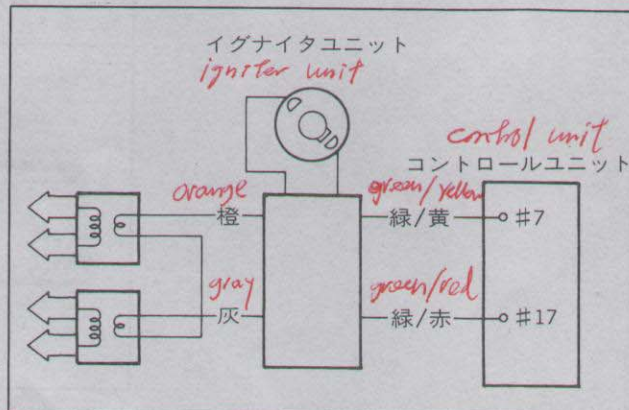 イグナイタユニット
igniter unit
control unit
コントロールユニット
orange
橙
green/yellow
緑/黄
♯7
gray
灰
green/red
緑/赤
♯17